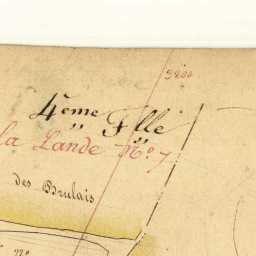 5800
4ème Flle
la Lande No. 7
des Brulais